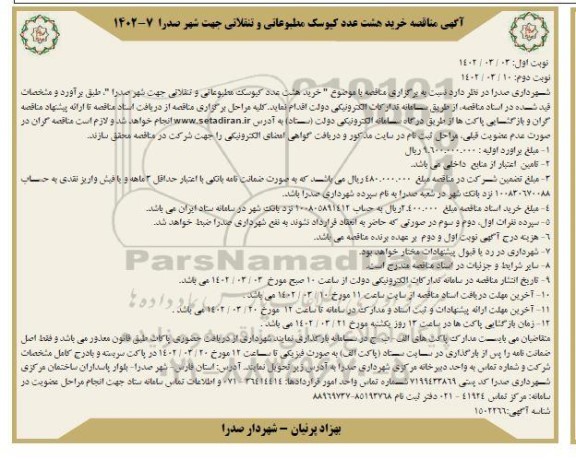 آگهی مناقصه خرید هشت عدد کیوسک مطبوعاتی و تنقلاتی جهت شهر صدرا ۷-۱۴۰۲
نوبت اول: ۰۳ / ۰۳ / ۱۴۰۲
نوبت دوم: ۱۰ / ۰۳ / ۱۴۰۲
شهرداری صدرا در نظر دارد نسبت به برگزاری مناقصه با موضوع " خرید هشت عدد کیوسک مطبوعاتی و تنقلاتی جهت شهر صدرا ". طبق برآورد و مشخصات
قید شده در اسناد مناقصه، از طریق سامانه تدارکات الکترونیکی دولت اقدام نماید. کلیه مراحل برگزاری مناقصه از دریافت اسناد مناقصه تا ارائه پیشنهاد مناقصه
گران و بازگشایی پاکت ها از طریق درگاه سامانه الکترونیکی دولت (ستاد) به آدرس www.setadiran.ir انجام خواهد شد و لازم است مناقصه گران در
صورت عدم عضویت قبلی، مراحل ثبت نام در سایت مذکور و دریافت گواهی امضای الکترونیکی را جهت شرکت در مناقصه محقق سازند.
۱- مبلغ برآورد اولیه : ۹.۶۰۰.۰۰۰.۰۰۰ ریال
۲- تامین اعتبار از منابع داخلی می باشد.
۳- مبلغ تضمین شرکت در مناقصه مبلغ ۴۸۰.۰۰۰.۰۰۰ ریال می باشد که به صورت ضمانت نامه بانکی با اعتبار حداقل ۳ ماهه و یا فیش واریز نقدی به حساب
۱۰۰۸۳۰۶۷۰۰۸۸ نزد بانک شهر در شعبه صدرا به نام سپرده شهرداری صدرا باشد.
۴- مبلغ خرید اسناد مناقصه مبلغ ۴۰۰.۰۰۰ ریال به حساب ۱۰۰۸۰۵۸۹۱۴۱۲ نزد بانک شهر در سامانه ستاد ایران می باشد.
۵- سپرده نفرات اول، دوم و سوم در صورتی که حاضر به انعقاد قرارداد نشوند به نفع شهرداری صدرا ضبط خواهد شد.
۶- هزینه درج آگهی نوبت اول و دوم بر عهده برنده مناقصه می باشد.
۷- شهرداری در رد یا قبول پیشنهادات مختار خواهد بود.
۸- سایر شرایط و جزئیات در اسناد مناقصه مندرج است.
۹- تاریخ انتشار مناقصه در سامانه تدارکات الکترونیکی دولت از ساعت ۱۰ صبح مورخ ۰۳ / ۰۳ / ۱۴۰۲ می باشد.
۱۰- آخرین مهلت دریافت اسناد مناقصه از سایت ساعت ۱۱ مورخ ۱۰ / ۰۳ / ۱۴۰۲ می باشد .
۱۱- آخرین مهلت ارائه پیشنهادات و ثبت اسناد و مدارک در سامانه تا ساعت ۱۲ مورخ ۲۰ / ۰۳ / ۱۴۰۲ می باشد .
۱۲- زمان بازگشایی پاکت ها در ساعت ۱۳ روز یکشنبه مورخ ۲۱ / ۰۳ / ۱۴۰۲ می باشد .
متقاضیان می بایست مدارک پاکت های الف، ب، ج در سامانه بارگذاری نمایند. شهرداری از دریافت حضوری پاکات طبق قانون معذور می باشد و فقط اصل
ضمانت نامه را پس از بارگذاری در سایت ستاد (پاکت الف) به صورت فیزیکی تا ساعت ۱۲ مورخ ۲۰ / ۰۳ / ۱۴۰۲ در پاکت سربسته و با درج کامل مشخصات
شرکت و شماره تماس به واحد دبیرخانه مرکزی شهرداری صدرا به آدرس زیر تحویل نمایند. آدرس: استان فارس - شهر صدرا- بلوار پاسداران ساختمان مرکزی
شهرداری صدرا کد پستی ۷۱۹۹۴۳۳۸۶۹ شماره تماس واحد امور قراردادها: ۳۶۴۱۴۴۱۴ - ۰۷۱ و اطلاعات تماس سامانه ستاد جهت انجام مراحل عضویت در
سامانه: مرکز تماس ۴۱۹۳۴ - ۰۲۱ دفتر ثبت نام ۸۵۱۹۳۷۶۸-۸۸۹۶۹۷۳۷
شناسه آگهی: ۱۵۰۲۲۶۶
بهزاد پرنیان – شهردار صدرا
ParsNamadData